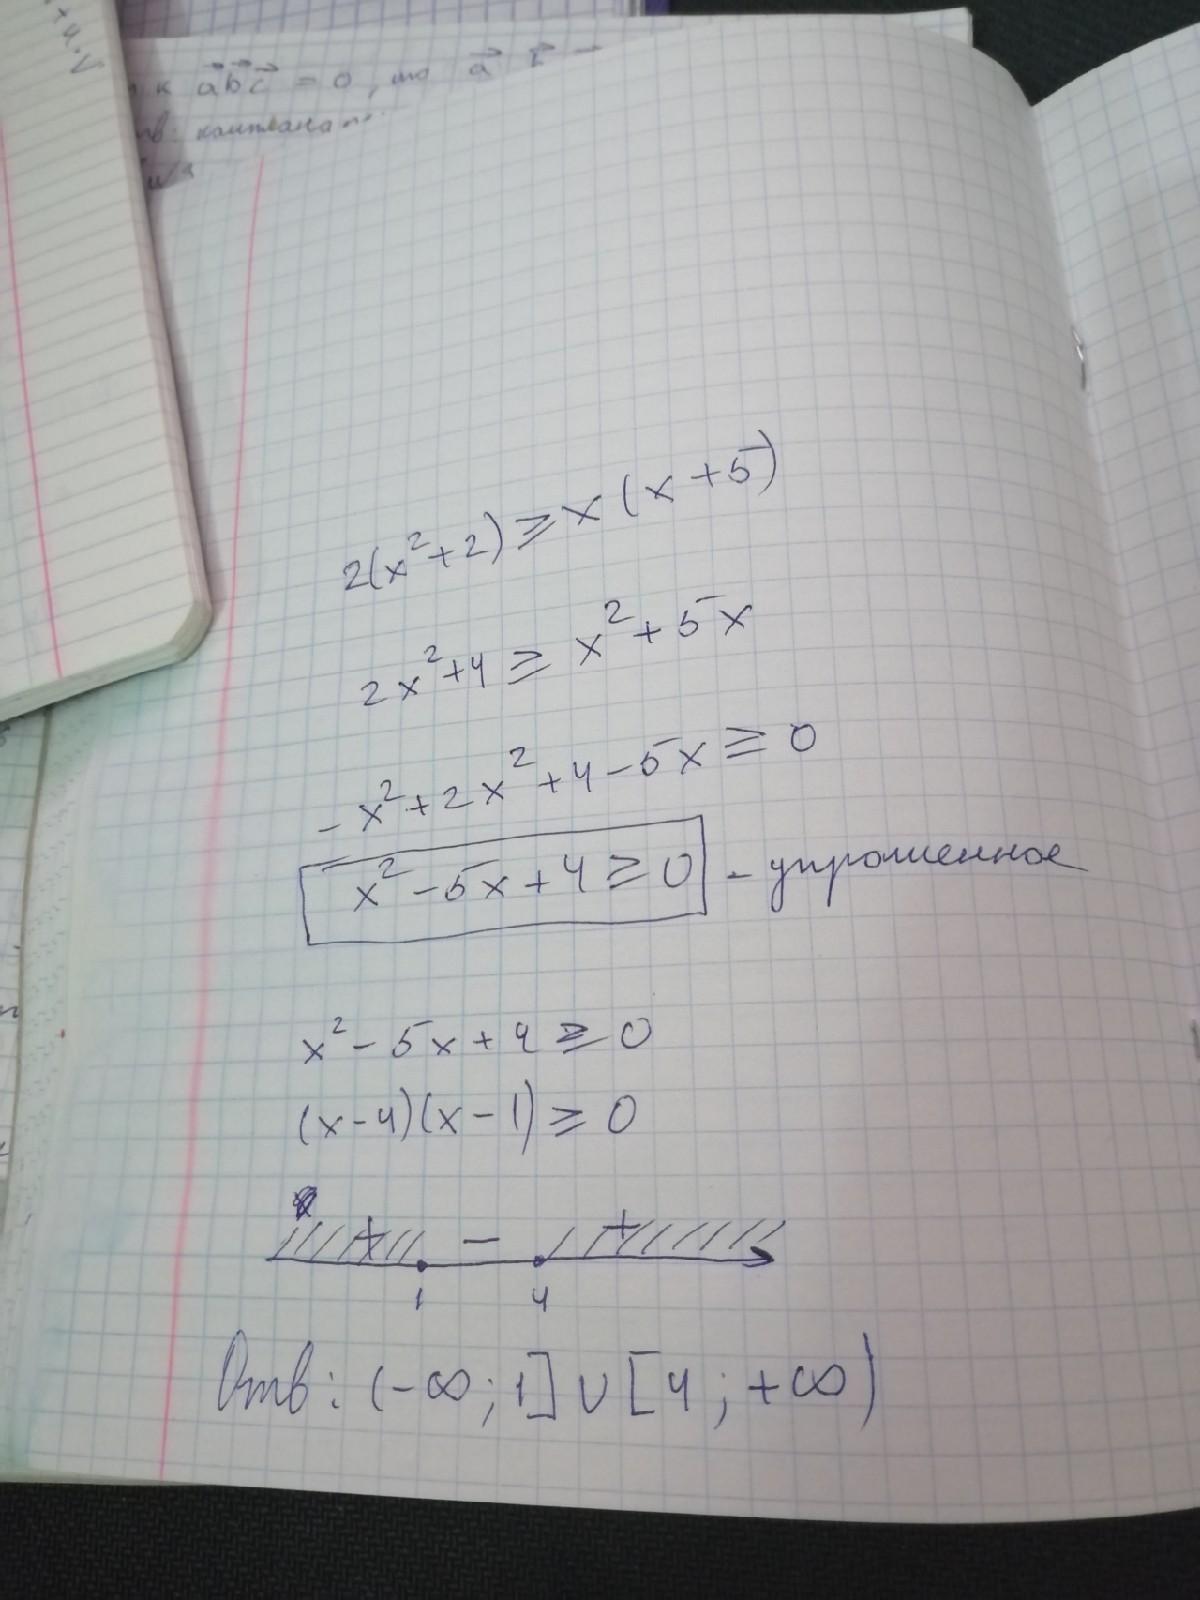 к a⃗b⃗c⃗ = 0, то a⃗
2(x²+2) ≥ x(x+5)
2x²+4 ≥ x²+5x
-x²+2x²+4-5x ≥ 0
x²-5x+4 ≥ 0 - упрошенное
x²-5x+4 ≥ 0
(x-4)(x-1) ≥ 0
+ - +
1 4
Отв: (-∞; 1] ∪ [4; +∞)